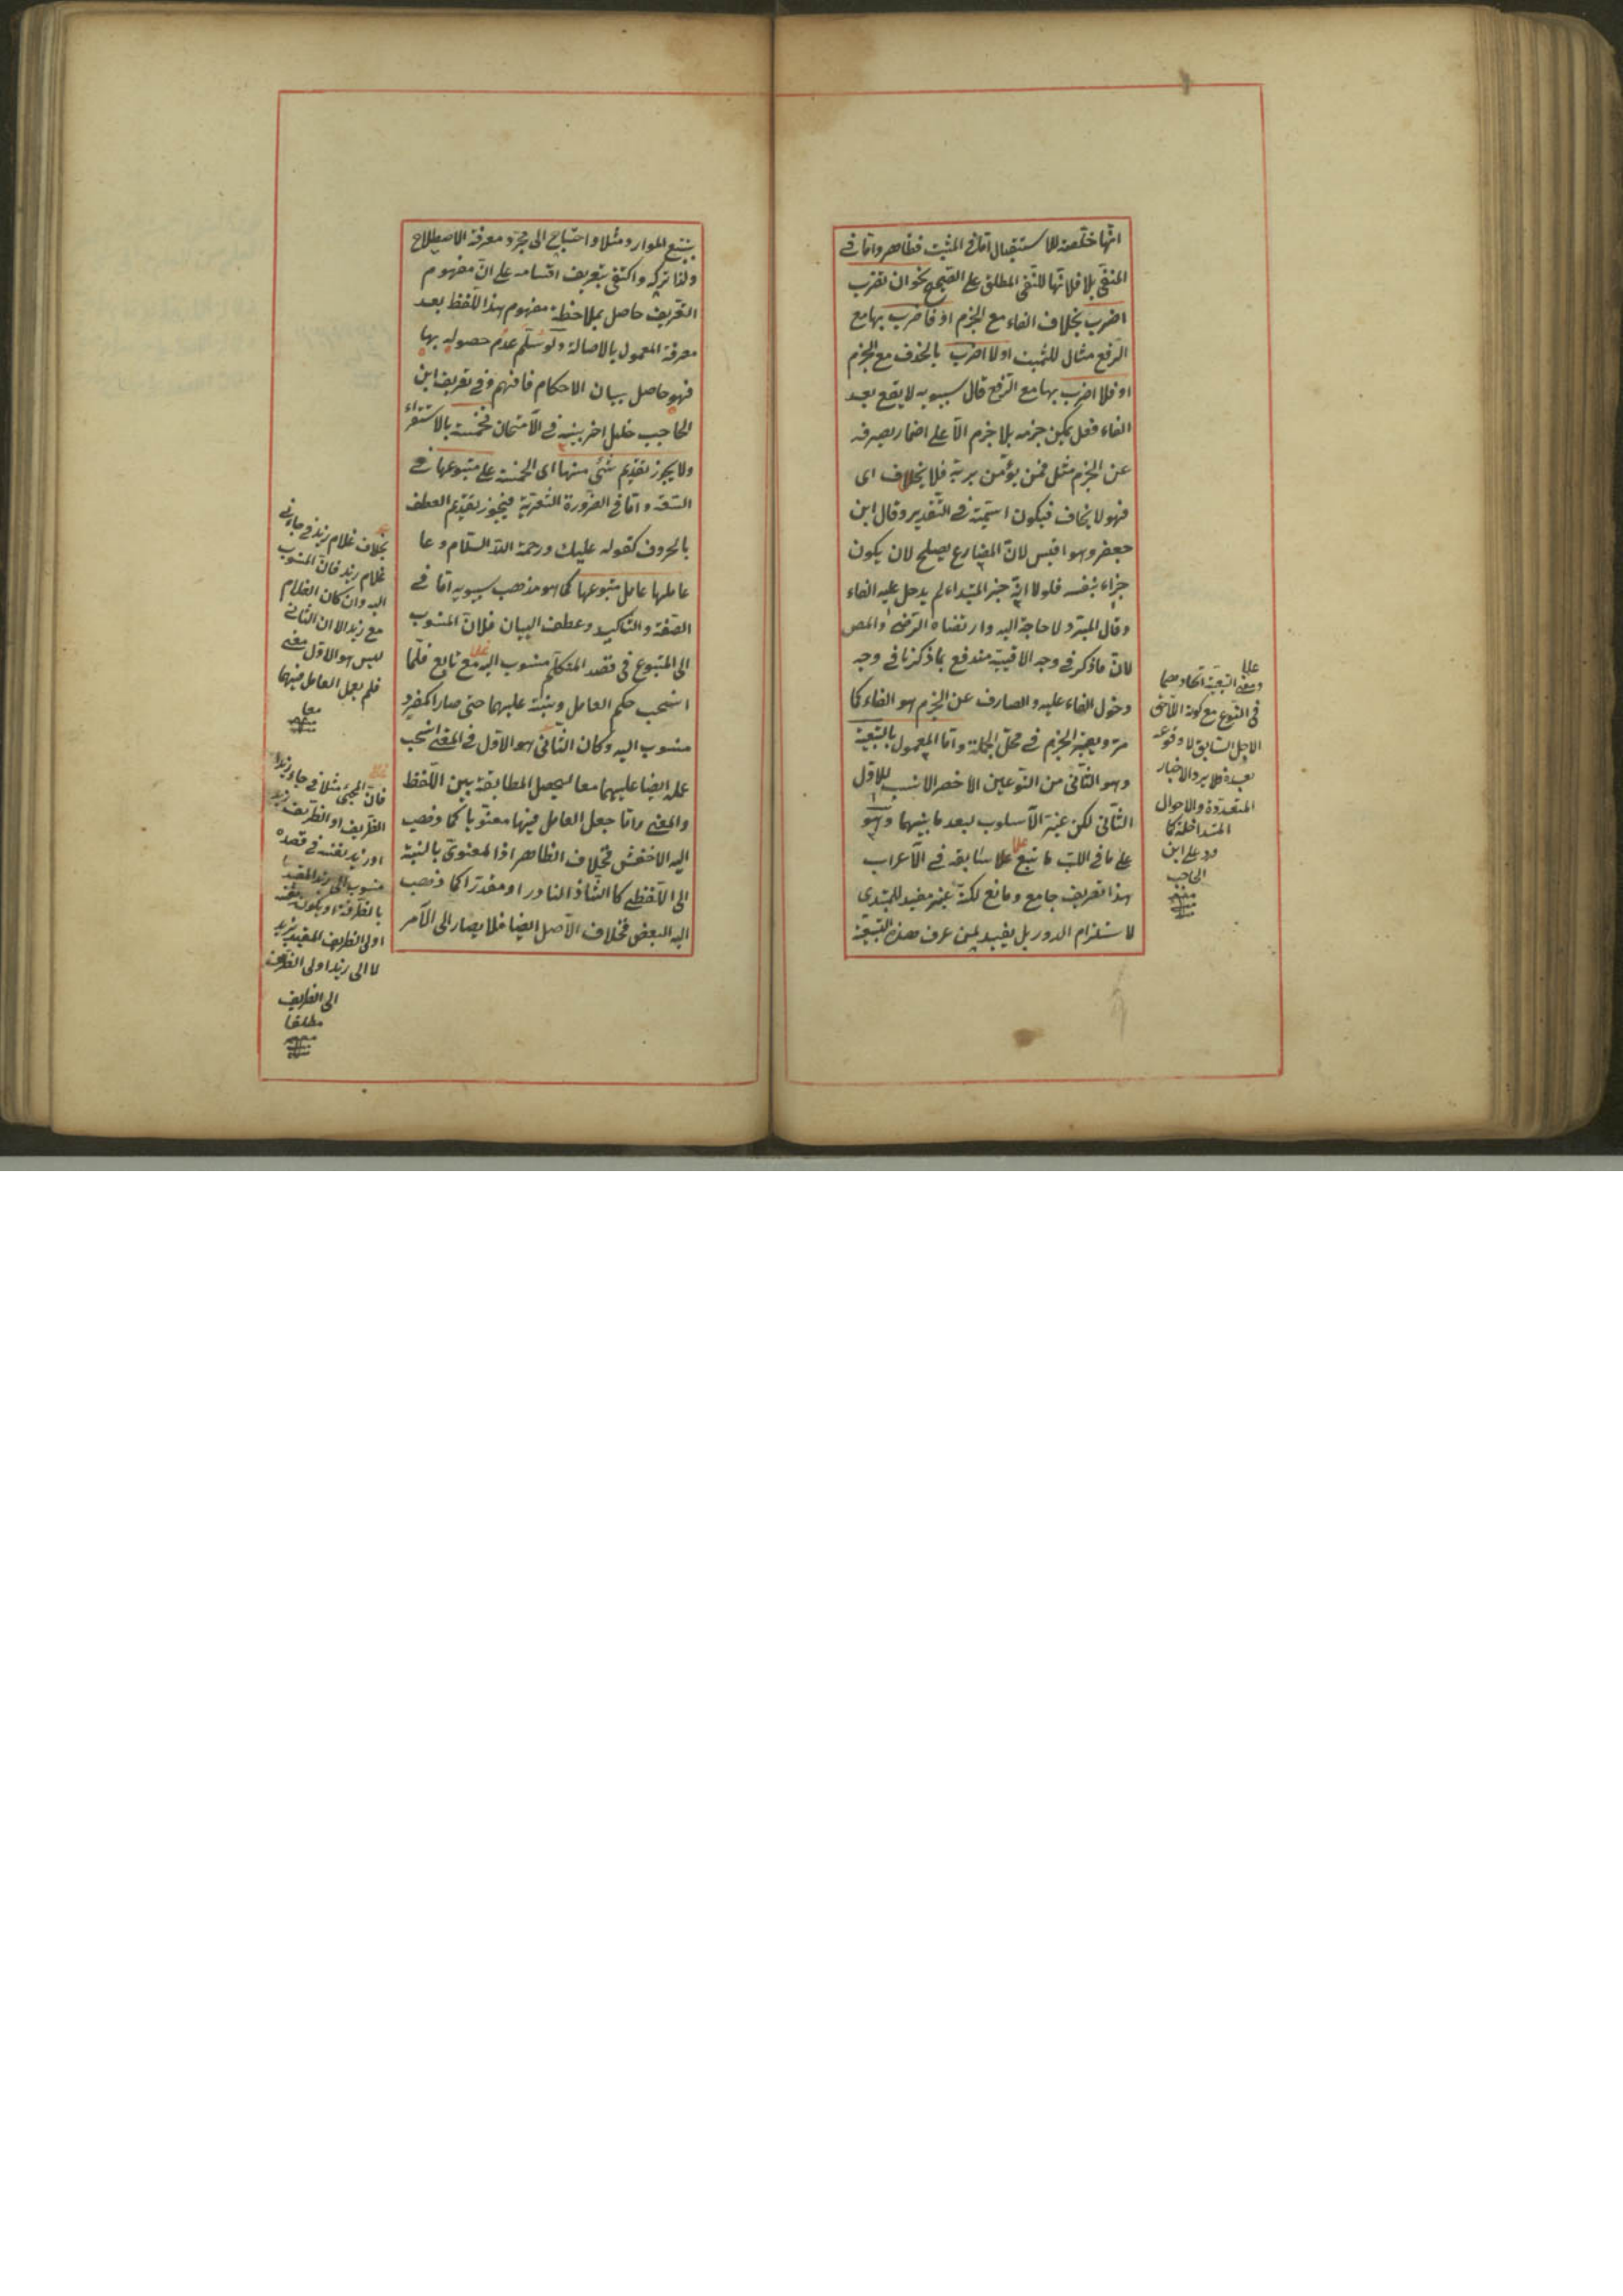 انها خلصته للاستقبال اما فى المثبت فظاهر واما فى
المنفى بلا فلانها للنفى المطلق على الصحيح نحو ان تضرب
اضرب بخلاف الفاء مع الجزم او فاضرب بها مع
الرفع مثال للمثبت او لا اضرب بالحذف مع الجزم
او فلا اضرب بها مع الرفع قال سيبويه لا يقع بعد
الفاء فعل يمكن جزمه بلا جزم الا على اضمار يصرفه
عن الجزم مثل فمن يؤمن بربه فلا يخاف اى
فهو لا يخاف فيكون اسمية فى التقدير وقال ابن
جعفر وهو اقيس لان المضارع يصلح لان يكون
جزاء بنفسه فلولا انه خبر المبتداء لم يدخل عليه الفاء
وقال المبرد لا حاجة اليه وارتضاه الرضى والمص
لان ما ذكر فى وجه الاقيسية مندفع بما ذكرنا فى وجه
دخول الفاء عليه والصارف عن الجزم هو الفاء كما
مر ويعتبر الجزم فى محل الجملة واما المعمول بالتبعية
وهو الثانى من النوعين الاخصر الانسب للاول
الثانى لكن غير الاسلوب لبعد ما بينهما وهو
على ما فى اللب ما يتبع سابقه فى الاعراب
هذا تعريف جامع ومانع لكنه غير مفيد للمبتدى
لاستلزام الدور بل يفيد لمن عرف هذه التبعية
ومعنى التبعية اتحادهما
فى النوع مع كونه اللاحق
لاجل السابق لا وقوعه
بعده فلا يرد الاخبار
المتعددة والاحوال
المتداخلة كما
ورد على ابن
الحاجب
منه
بتتبع الموارد مثلا واحتاج الى مجرد معرفة الاصطلاح
ولذا تركه واكتفى بتعريف اقسامه على ان مفهوم
التعريف حاصل بملاحظة مفهوم هذا اللفظ بعد
معرفة المعمول بالاصالة ولو سلم عدم حصوله بها
فهو حاصل ببيان الاحكام فافهم وفى تعريف ابن
الحاجب خلل اخر بينه فى الامتحان فخمسة بالاستقراء
ولا يجوز تقديم شئ منها اى الخمسة على متبوعها فى
السعة واما فى الضرورة الشعرية فيجوز تقديم العطف
بالحروف كقوله عليك ورحمة الله السلام وعا
عاملها عامل متبوعها كما هو مذهب سيبويه اما فى
الصفة والتاكيد وعطف البيان فلان المنسوب
الى المتبوع فى قصد المتكلم منسوب اليه مع تابع فلما
انسحب حكم العامل ونسبته عليهما حتى صارا كمفرد
منسوب اليه وكان الثانى هو الاول فى المعنى انسحب
عمله ايضا عليهما معا ليحصل المطابقة بين اللفظ
والمعنى واما جعل العامل فيها معنويا كما ذهب
اليه الاخفش فخلاف الظاهر اذ المعنوى بالنسبة
الى اللفظى كالشاذ النادر او مقدرا كما ذهب
اليه البعض فخلاف الاصل ايضا فلا يصار الى الامر
بخلاف غلام زيد فى جاءنى
غلام زيد فان المنسوب
اليه وان كان الغلام
مع زيد الا ان الثانى
ليس هو الاول معنى
فلم يعمل العامل فيهما
معا
منه
فان المجئ مثلا فى جاء زيد
الظريف او الظريف زيد
او زيد نفسه فى قصده
منسوب الى زيد المقيد
بالظرافة او بكونه نفسه
او الى الظريف المقيد بزيد
لا الى زيد او الى الظريف
الى الظريف
مطلقا
منه